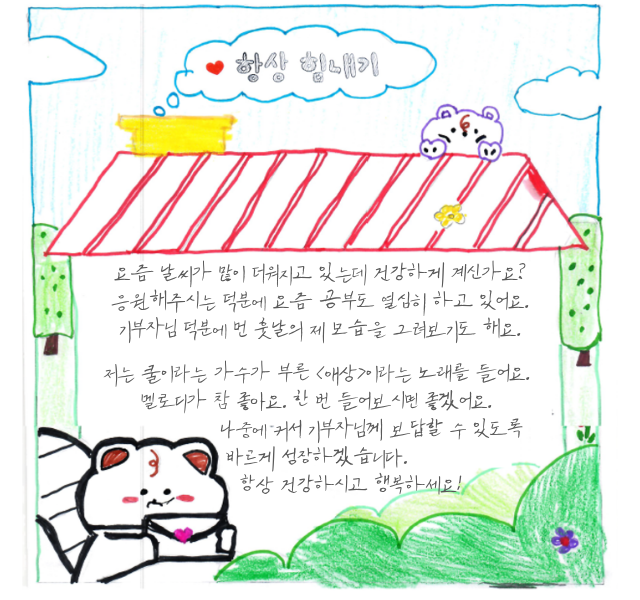 항상 힘내기
요즘 날씨가 많이 더워지고 있는데 건강하게 계신가요?
응원해주시는 덕분에 요즘 공부도 열심히 하고 있어요.
기부자님 덕분에 먼 훗날의 제 모습을 그려보기도 해요.
저는 쿨이라는 가수가 부른 <애상>이라는 노래를 들어요.
멜로디가 참 좋아요. 한 번 들어보시면 좋겠어요.
나중에 커서 기부자님께 보답할 수 있도록
바르게 성장하겠습니다.
항상 건강하시고 행복하세요!